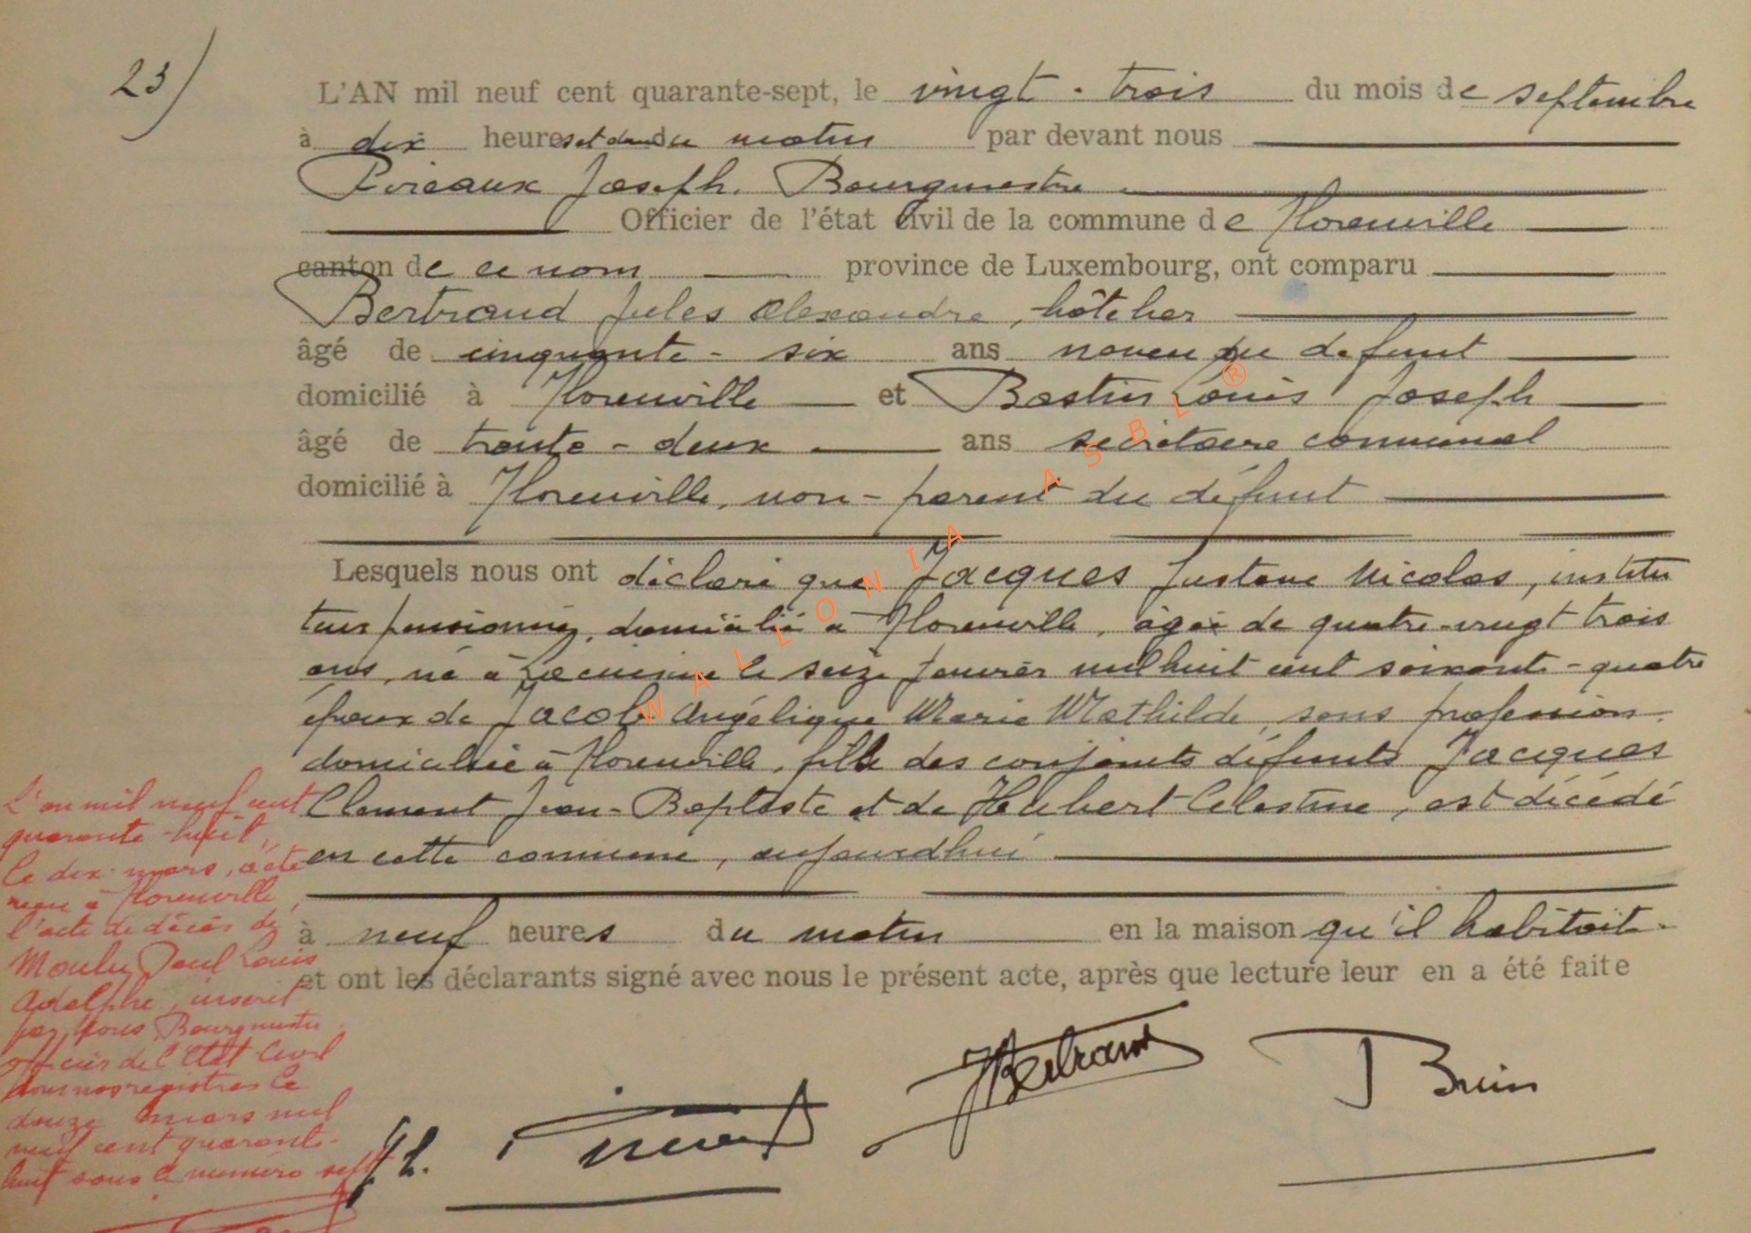 23)
L'AN mil neuf cent quarante-sept, le vingt-trois du mois de septembre
à dix heures et demi du matin par devant nous
Pireaux Joseph, Bourgmestre
Officier de l'état civil de la commune de Florenville
canton de ce nom province de Luxembourg, ont comparu
Bertrand Jules Alexandre, hôtelier
âgé de cinquante-six ans neveu du defunt
domicilié à Florenville et Bastin Louis Joseph
âgé de trente-deux ans secrétaire communal
domicilié à Florenville, non-parent du défunt
Lesquels nous ont déclaré que Jacques Gustave Nicolas, institu
teur pensionné, domicilié à Florenville, âgé de quatre-vingt trois
ans, né à Lacuisine le seize janvier mil huit cent soixante-quatre
époux de Jacob Angélique Marie Mathilde, sans profession,
domiciliée à Florenville, fils des conjoints défunts Jacques
Clement Jean-Baptiste et de Hubert Célestine, est décédé
en cette commune, aujourdhui
à neuf heures du matin en la maison qu'il habitait.
et ont les déclarants signé avec nous le présent acte, après que lecture leur en a été faite
L'an mil neuf cent
quarante-huit,
le dix mars, a été
reçu à Florenville,
l'acte de décès de
Louis
Adolphe, inscrit
par nous Bourgmestre
officier de l'Etat Civil
dans nos registres le
douze mars mil
neuf cent quarante-
huit sous le numéro sept
JBertrand
WALLONIA ASBL ®